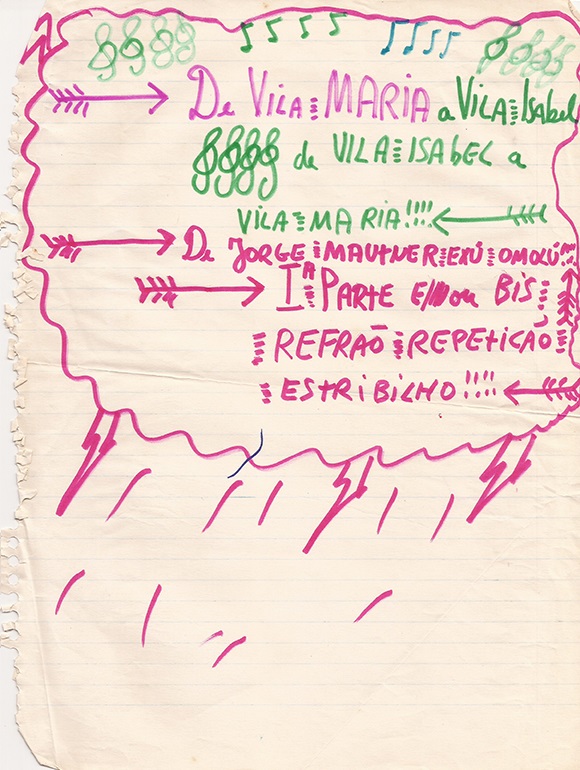 De VILA⋮MARIA a VILA⋮Isabel
de VILA⋮ISAbEL a
VILA⋮MARIA!!!!
De JORGE⋮MAUTNER⋮EXÚ⋮OMOLÚ!!!!
Iª PARTE E/ou BIS⋮
⋮REFRAÕ⋮REPETIÇAÕ⋮
⋮ESTRIBILHO!!!!